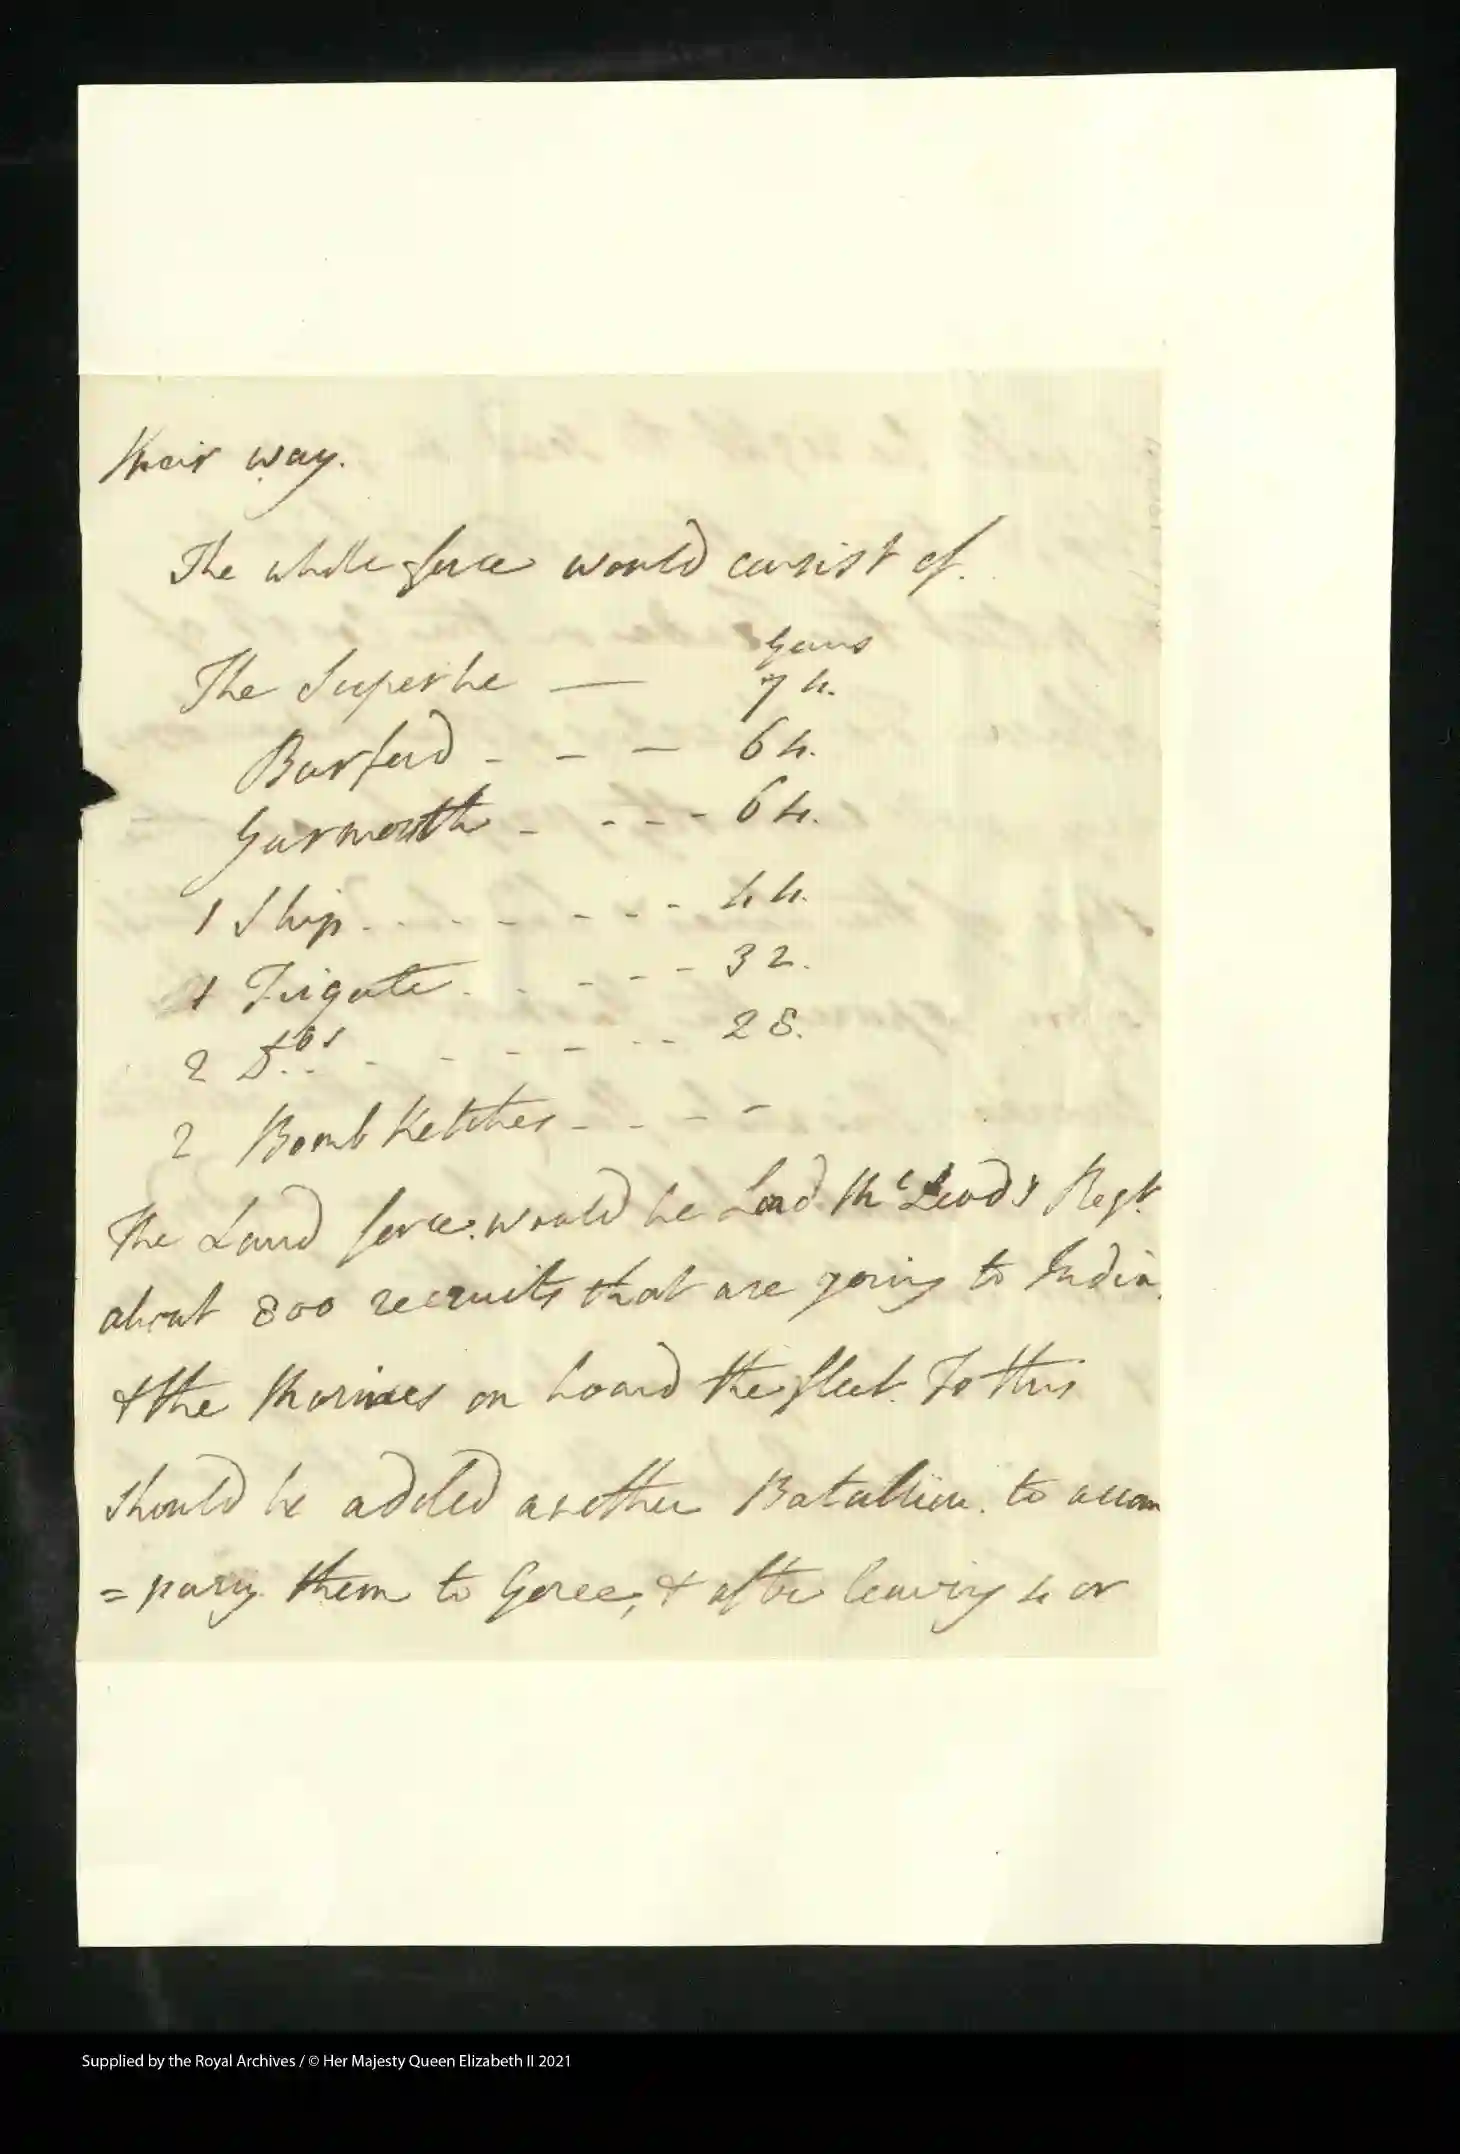 their way.
The whole force would consist of.
Guns
The Superbe — 74.
Burford - - - 64.
Yarmouth - - - - 64.
1 Ship - - - - - - 44.
1 Frigate - - - - - 32.
2 Dos - - - - - - 28.
2 Bomb Ketches - - - -
The Land force would be Lord McLeod's Regt.
about 800 recruits that are going to India,
& the Marines on board the fleet. To this
should be added another Batallion. to accom
=pany them to Goree, & after leaving 4 or
Supplied by the Royal Archives / © Her Majesty Queen Elizabeth II 2021